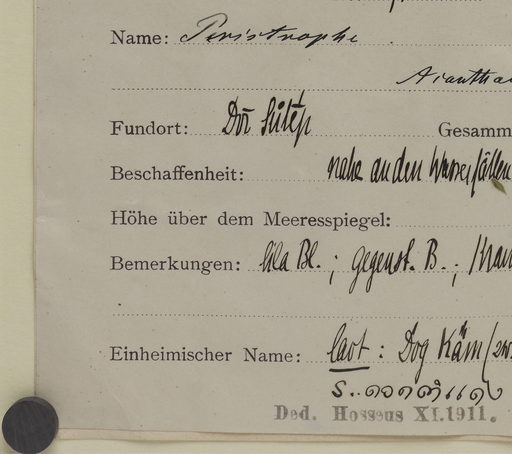 Name: Peristrophe
Acantha
Fundort: Doi Sutep Gesamm
Beschaffenheit: nahe an den Wasserfällen
Höhe über dem Meeresspiegel:
Bemerkungen: lila Bl.; gegenst. B.; Krau
Einheimischer Name: laot: Dog Käm (zw.
Ded. Hosseus XI.1911.